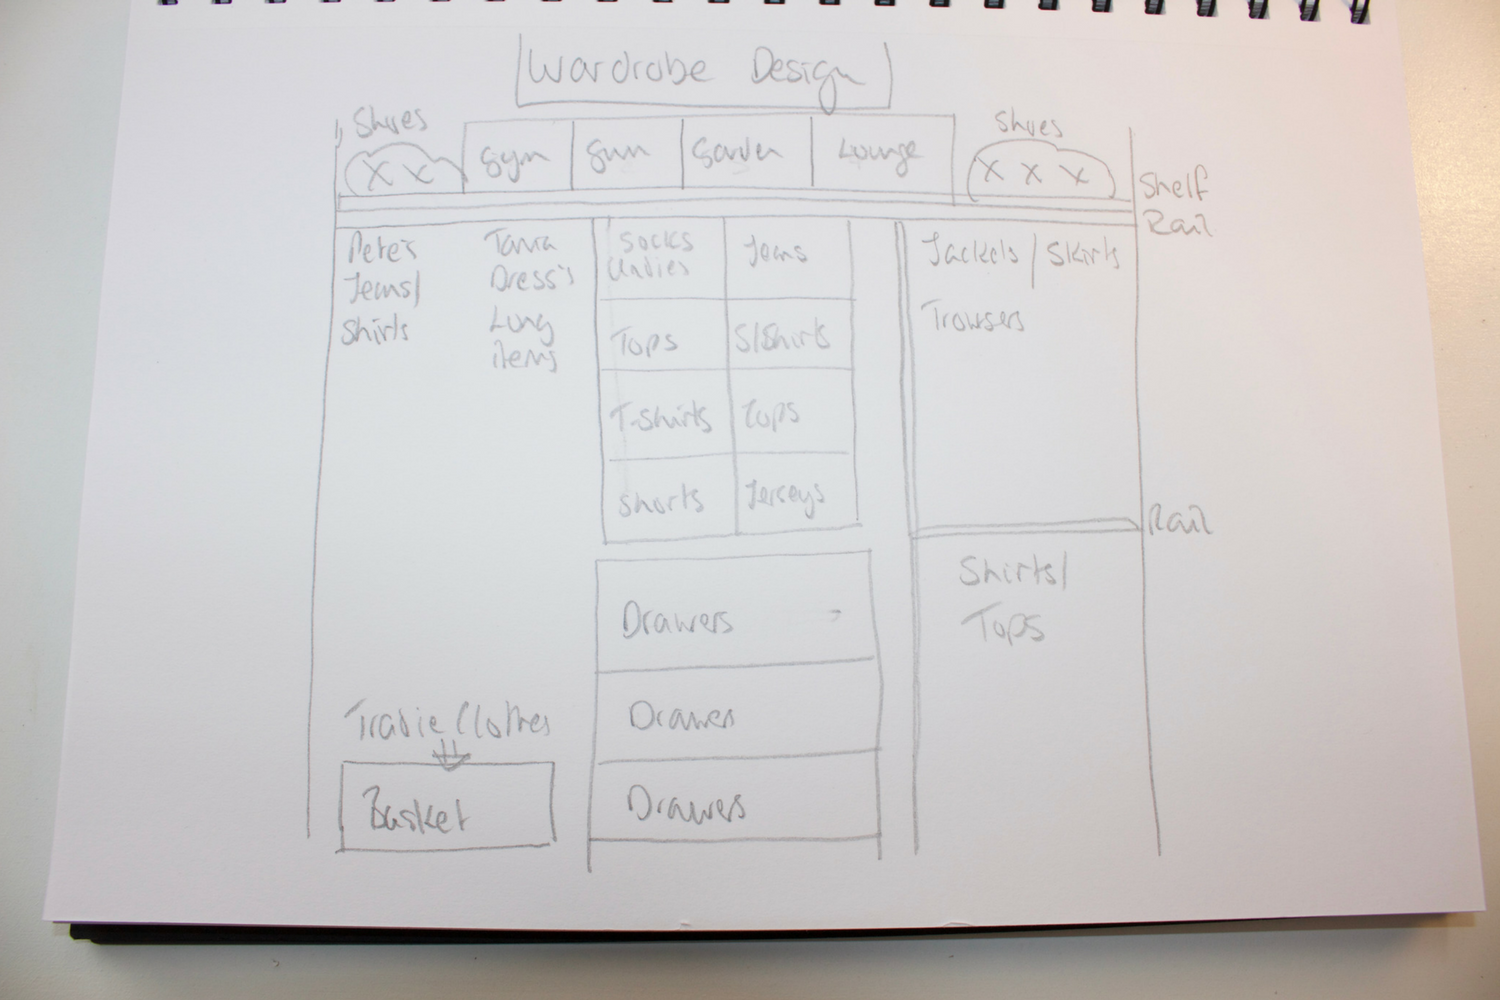 Wardrobe Design
Shoes
Shoes
X X
Gym
Sun
Garden
Lounge
X X X
Shelf
Rail
Pete's
Jeans/
Shirts
Tania
Dress's
Long
items
Socks
Undies
Jeans
Tops
S/Shirts
T-Shirts
Tops
Shorts
Jerseys
Jackets / Skirts
Trowsers
Rail
Shirts/
Tops
Drawers
Drawer
Drawers
Tradie Clothes
Basket